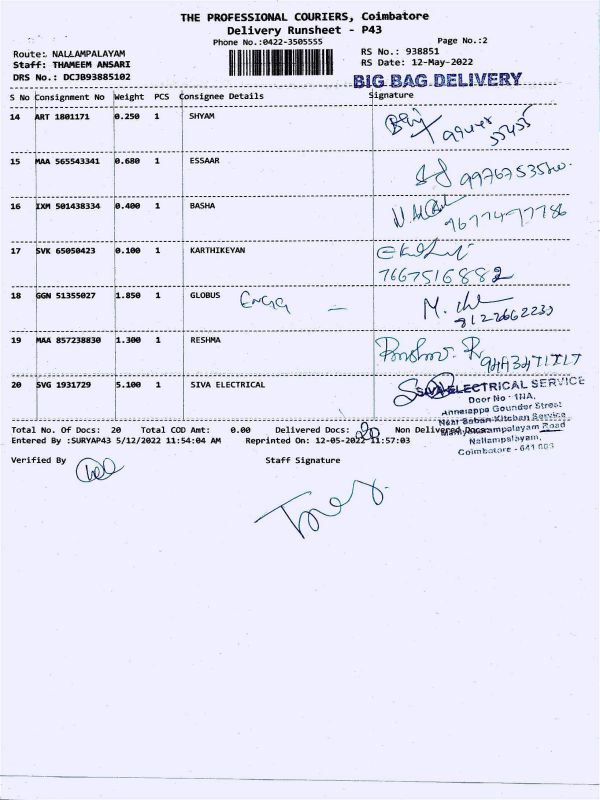 THE PROFESSIONAL COURIERS, Coimbatore
Delivery Runsheet - P43
Phone No.:0422-3505555
Page No.:2
Route: NALLAMPALAYAM
RS No.: 938851
Staff: THAMEEM ANSARI
RS Date: 12-May-2022
DRS No.: DCJB93885102
BIG BAG DELIVERY
S No Consignment No Weight PCS Consignee Details Signature
14 ART 1801171 0.250 1 SHYAM
15 MAA 565543341 0.680 1 ESSAAR
16 IXM 501438334 0.400 1 BASHA
9677477786
17 SVK 65050423 0.100 1 KARTHIKEYAN
7667516882
18 GGN 51355027 1.850 1 GLOBUS Engg -
8122662233
19 MAA 857238830 1.300 1 RESHMA
20 SVG 1931729 5.100 1 SIVA ELECTRICAL
SIVA ELECTRICAL SERVICE
Door No - 11/1A,
Annaiappa Gounder Street
Near Baban Kitchan Service
Maniyakarampalayam Road
Nallampalayam,
Coimbatore - 641 006
Total No. Of Docs: 20 Total COD Amt: 0.00 Delivered Docs: 20 Non Delivered Docs:
Entered By :SURYAP43 5/12/2022 11:54:04 AM Reprinted On: 12-05-2022 11:57:03
Verified By Staff Signature